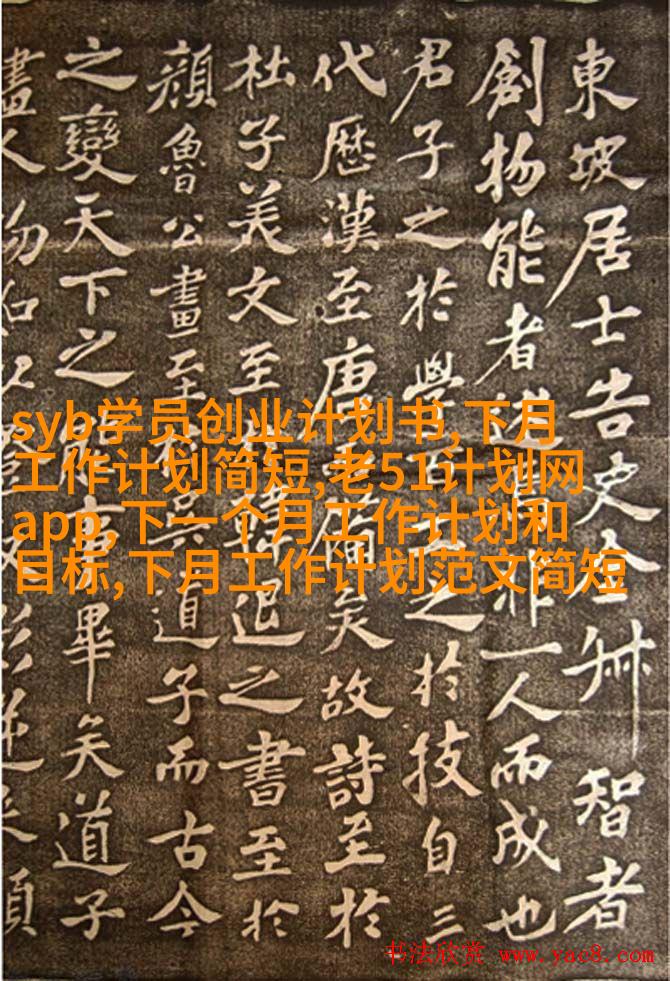 東坡居士告史全叔智者
創物能者述焉非一人而成也
君子之於學百工之於技自三
代歷漢至唐而備矣故詩至於
杜子美文至於韓退之書至於
顏魯公畫至於吳道子而古今
之變天下之能事畢矣道子
畫人物如以燈取影逆來順
syb学员创业计划书,下月
工作计划简短,老51计划网
app,下一个月工作计划和
目标,下月工作计划范文简短
书法欣赏 www.yac8.com